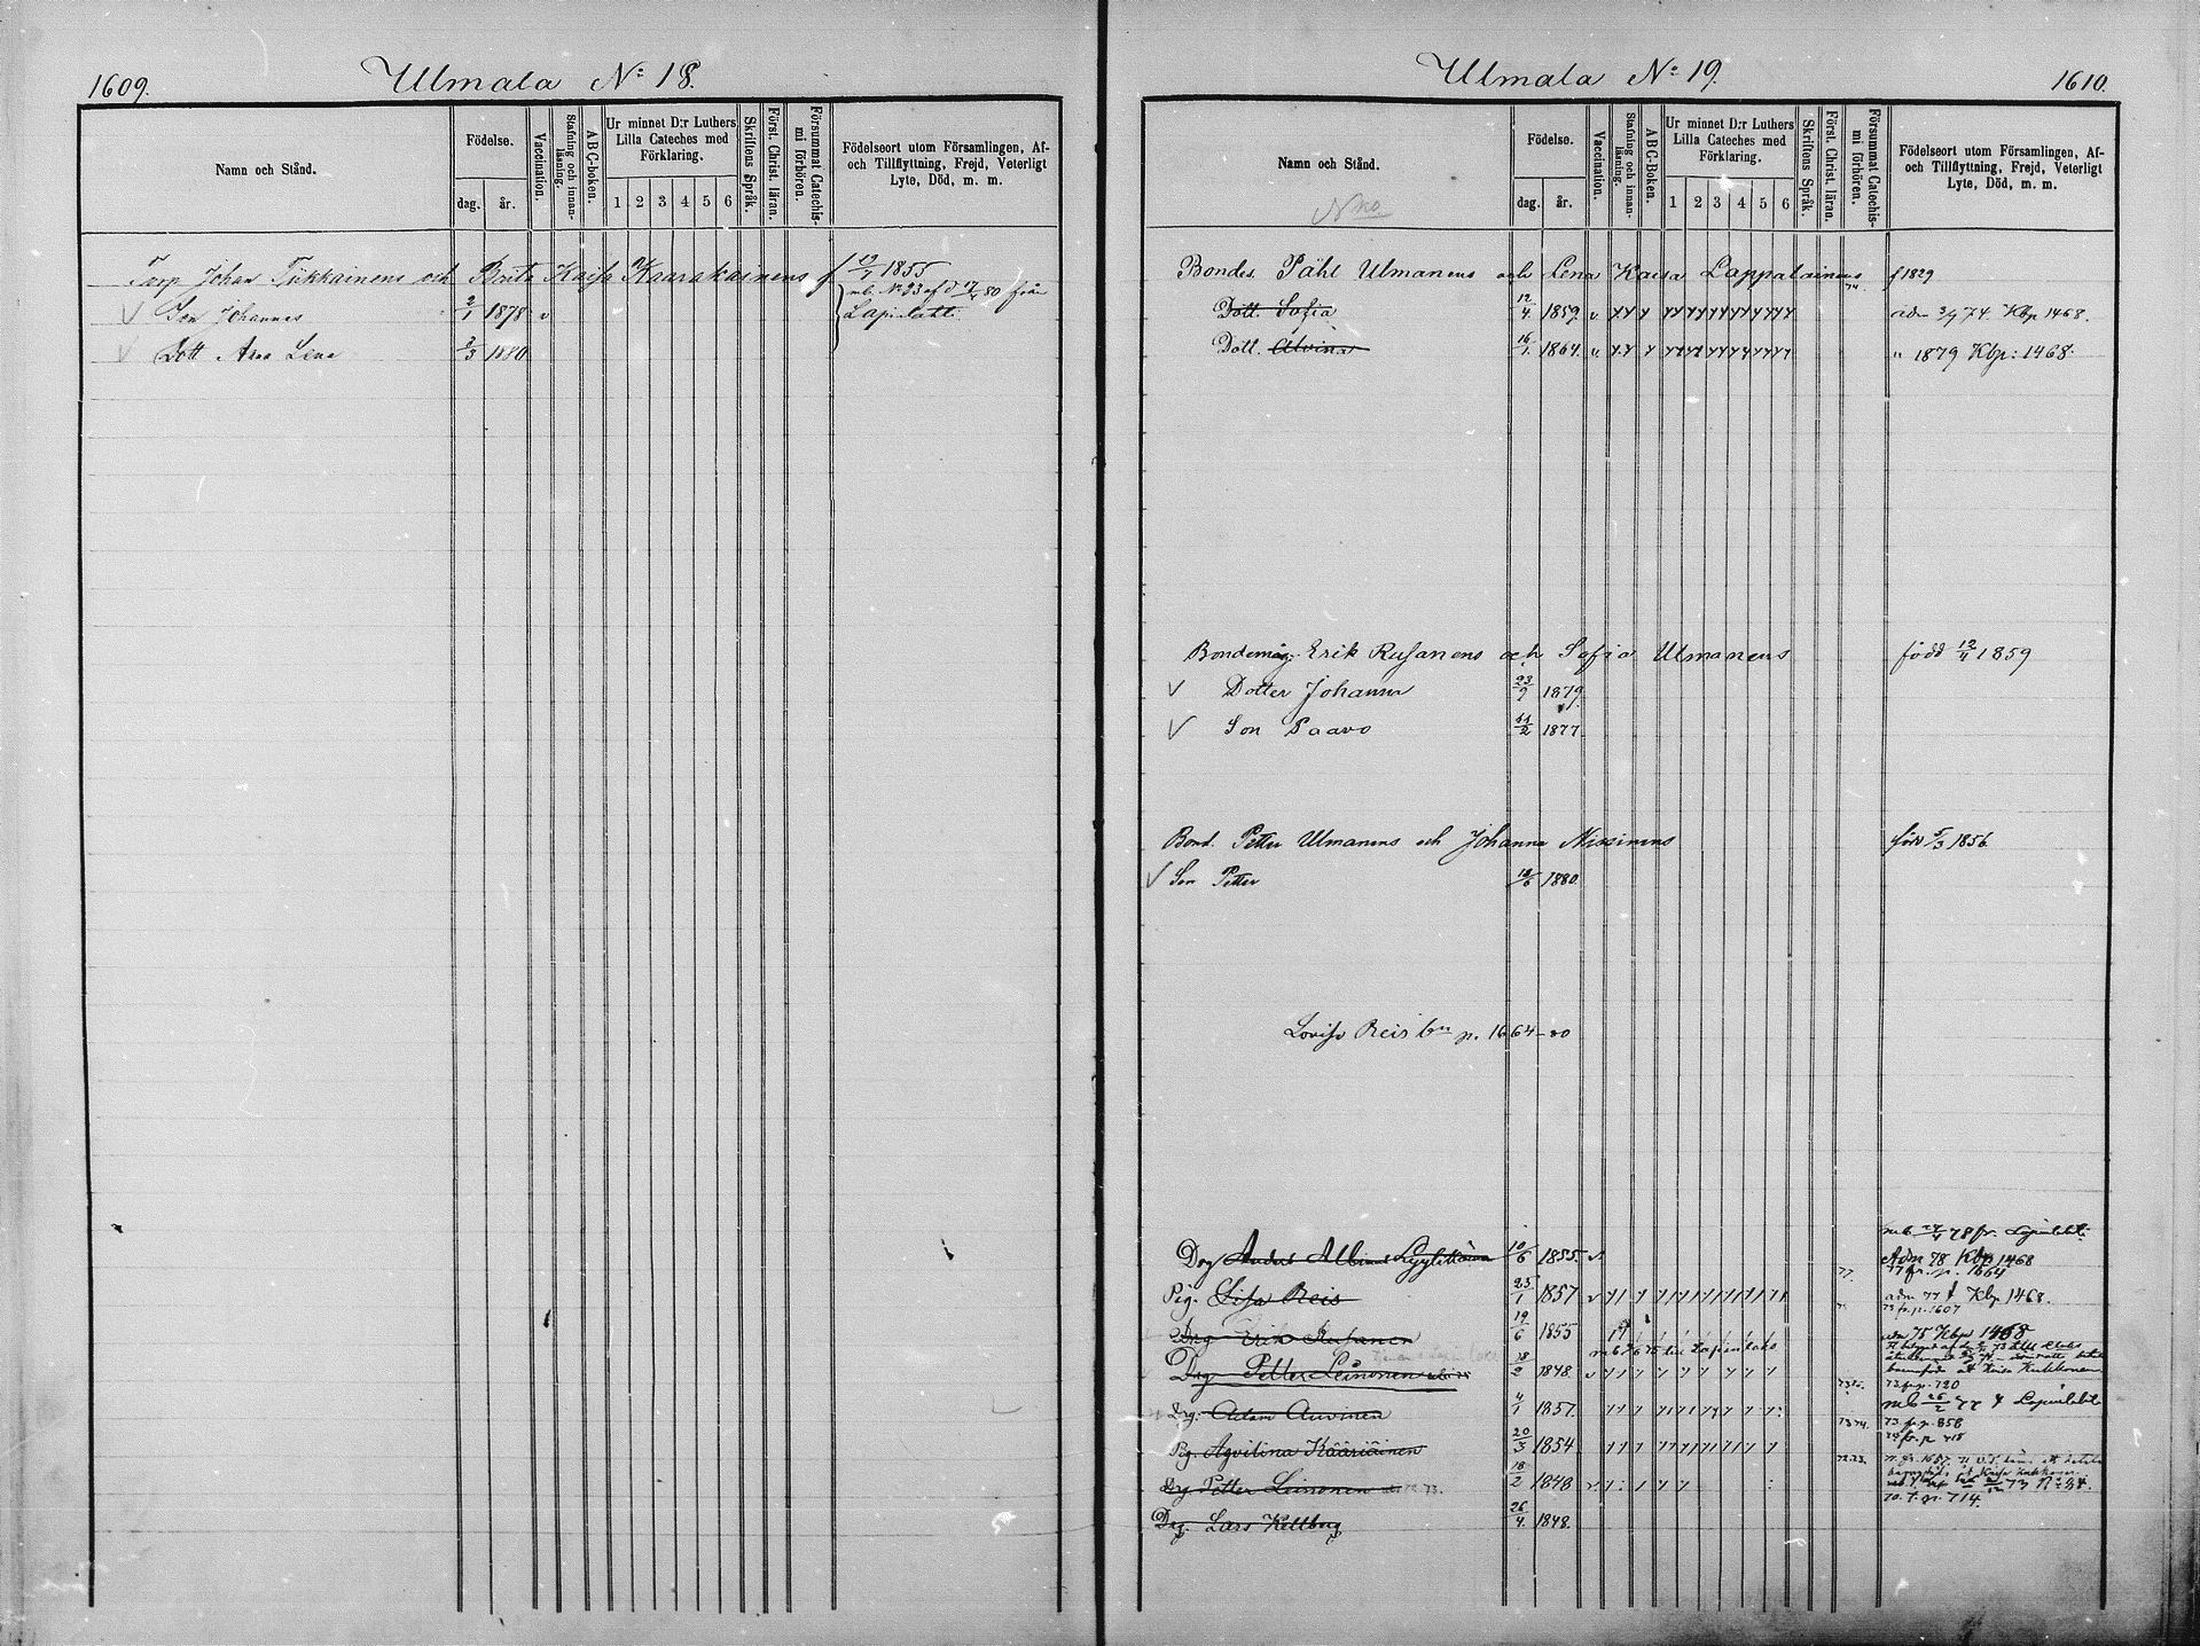 1609.
Ulmala No 18.
Namn och Stånd.
Födelse.
dag.
år.
Vaccination.
Stafning och innan-
läsning.
ABC-boken.
Ur minnet D:r Luthers
Lilla Cateches med
Förklaring.
1 2 3 4 5 6
Skriftens Språk.
Först. Christ. läran.
Försummat Catechis-
mi förhören.
Födelseort utom Församlingen, Af-
och Tillflyttning, Frejd, Veterligt
Lyte, Död, m. m.
Torp Johan Tükkainens och Brita Kaisa Kaarakainens f 1855
mb. No 23 af d 17/4 80 från
Son Johannes 2/1 1878 v Lapinlaht.
Dott Anna Lena 3/3 1880
Ulmala No 19.
1610.
Namn och Stånd.
Födelse.
dag.
år.
Vaccination.
Stafning och innan-
läsning.
ABC-Boken.
Ur minnet D:r Luthers
Lilla Cateches med
Förklaring.
1 2 3 4 5 6
Skriftens Språk.
Först. Christ. läran.
Försummat Catechis-
mi förhören.
Födelseort utom Församlingen, Af-
och Tillflyttning, Frejd, Veterligt
Lyte, Död, m. m.
Bondes. Påhl Ulmanens och Lena Kaisa Lappalainens f 1829
Dött. Sofia 12/4 1859 v adm 74. Kbp 1468.
Dött. Alvina 16/1 1864 " 1879 Kbp: 1468.
Bondemåg. Erik Rusanens och Sofia Ulmanens född 12/4 1859
Dotter Johanna 23/9 1879
Son Paavo 11/2 1877
Bond. Petter Ulmanens och Johanna Nissinens född 5/3 1856
Son Petter 18/6 1880
Lovisa Reis bn p. 1664-80
mb 78 fr. Lapinlahti
Drg Anders Albin 10/6 1855 Adm 78 Kbp 1468
77 fr. p. 1664
Pig. Lisa Reis 25/1 1857 adm 77 Kbp 1468.
73 fr. p. 1607
Drg Erik Rusanen 19/6 1855 adm 75 Kbp 1468
Drg Petter Leinonen 18/2 1848
Drg. Adam Auvinen 4/1 1857
Pig. Agvilina Kääriäinen 20/3 1854 73 fr. p. 858
Drg Petter Leinonen 18/2 1848
70. f. p. 714.
Drg. Lars Kellberg 26/4 1848